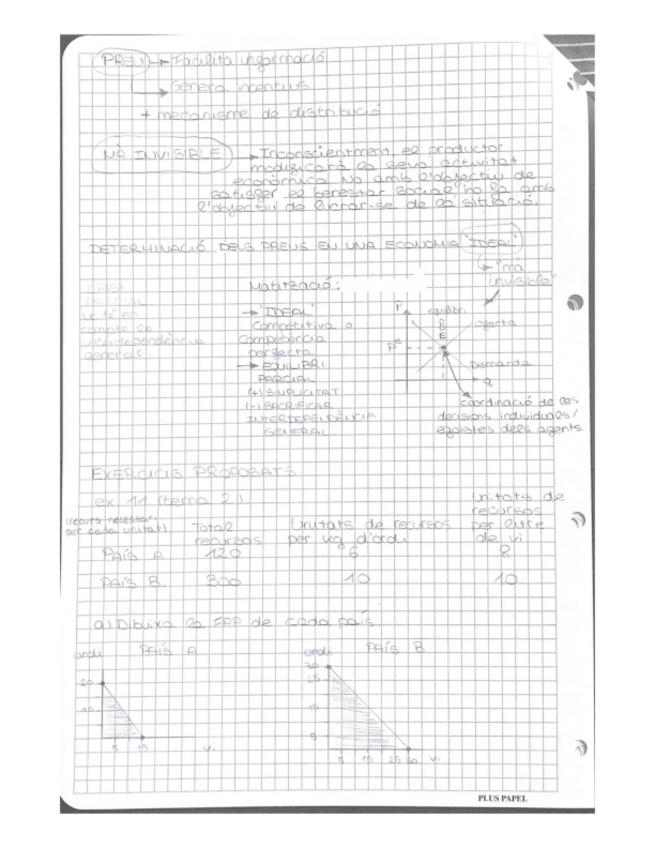 PREU → Facilita informació
→ Genera incentius
+ mecanisme de distribució
MÀ INVISIBLE → Inconscientment el productor
modificarà la seva activitat
econòmica no amb l'objectiu de
satisfer el benestar social no la amb
l'objectiu de lucrar-se de la situació.
DETERMINACIÓ DELS PREUS EN UNA ECONOMIA "IDEAL"
↳ "mà
invisible"
Matització:
→ "IDEAL"
Competitiva o
competència
perfecta
→ EQUILIBRI
PARCIAL
(+) SIMPLICITAT
(-) SACRIFICAR
INTERDEPENDÈNCIA
GENERAL
P
equilibri
E
oferta
P*
Demanda
Q
coordinació de les
decisions individuals/
egoistes dels agents
EXERCICIS PROPOSATS
ex 11 (tema 2)
(recurs necessari
per cada unitat)
Total
recursos
Unitats de recursos
per kg d'ordi
Unitats de
recursos
per litre
de vi
PAÍS A 120 6 8
PAÍS B 300 10 10
a) Dibuixa la FPP de cada país
ordi PAÍS A
20
10
5 15 Vi
ordi PAÍS B
30
25
15
5
5 15 25 30 Vi
PLUS PAPEL